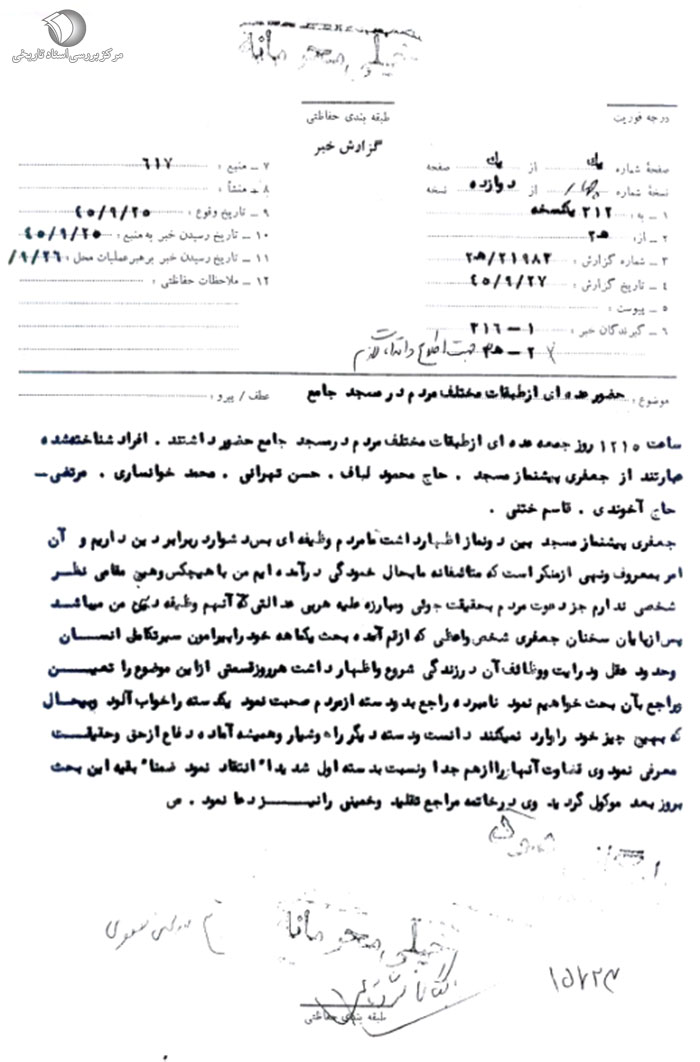 مرکز بررسی اسناد تاریخی
خیلی محرمانه
طبقه بندی حفاظتی
درجه فوریت
گزارش خبر
صفحهٔ شماره یک از یک صفحه
نسخهٔ شماره چهار از دوازده نسخه
۱ ــ به : ۳۱۲ یکنسخه
۲ ــ از : ه‍ ۲
۳ ــ شماره گزارش : ۲۱۹۸۲/ه‍ ۲
۴ ــ تاریخ گزارش : ۴۵/۹/۲۷
۵ ــ پیوست :
۶ ــ گیرندگان خبر : ۱ ــ ۳۱۶
۲ ــ ه‍ ۳ جهت اطلاع و اقدام لازم
۷ ــ منبع : ۶۱۷
۸ ــ منشأ :
۹ ــ تاریخ وقوع : ۴۵/۹/۲۵
۱۰ ــ تاریخ رسیدن خبر به منبع : ۴۵/۹/۲۵
۱۱ ــ تاریخ رسیدن خبر برهبر عملیات محل : ۹/۲۶/
۱۲ ــ ملاحظات حفاظتی :
موضوع : حضور عده ای از طبقات مختلف مردم در مسجد جامع
عطف / پیرو :
ساعت ۱۲۱۵ روز جمعه عده ای از طبقات مختلف مردم در مسجد جامع حضور داشتند . افراد شناخته شده
عبارتند از جعفری پیشنماز مسجد . حاج محمود لباف . حسن تهرانی . محمد خوانساری . مرتضی ــ
حاج آخوندی . قاسم ختنی .
جعفری پیشنماز مسجد بین دو نماز اظهار داشت ما مردم وظیفه ای بس دشوار در برابر دین داریم و آن
امر بمعروف و نهی از منکر است که متأسفانه ما بحال خمودگی درآمده ایم من با هیچکس و هیچ مقامی نظر
شخصی ندارم جز دعوت مردم بحقیقت جوئی و مبارزه علیه هر بی عدالتی که آنهم وظیفه دینی من میباشد
پس از پایان سخنان جعفری شخص واعظی که از قم آمده بحث یکماهه خود را پیرامون سیر تکامل انسان
و حدود عقل و درایت و وظائف آن در زندگی شروع و اظهار داشت هر روز قسمتی از این موضوع را تعیین
و راجع بآن بحث خواهیم نمود نامبرده راجع بدو دسته از مردم صحبت نمود یکدسته را خواب آلود و بیحال
که بهیچ چیز خود را وارد نمیکنند دانست و دسته دیگر را هوشیار و همیشه آماده دفاع از حق و حقیقت
معرفی نمود وی قضاوت آنها را از هم جدا و نسبت بدسته اول شدیداً انتقاد نمود ضمناً بقیه این بحث
بروز بعد موکول گردید وی در خاتمه مراجع تقلید و خمینی را نیز دعا نمود . ص
خیلی محرمانه
طبقه بندی حفاظتی